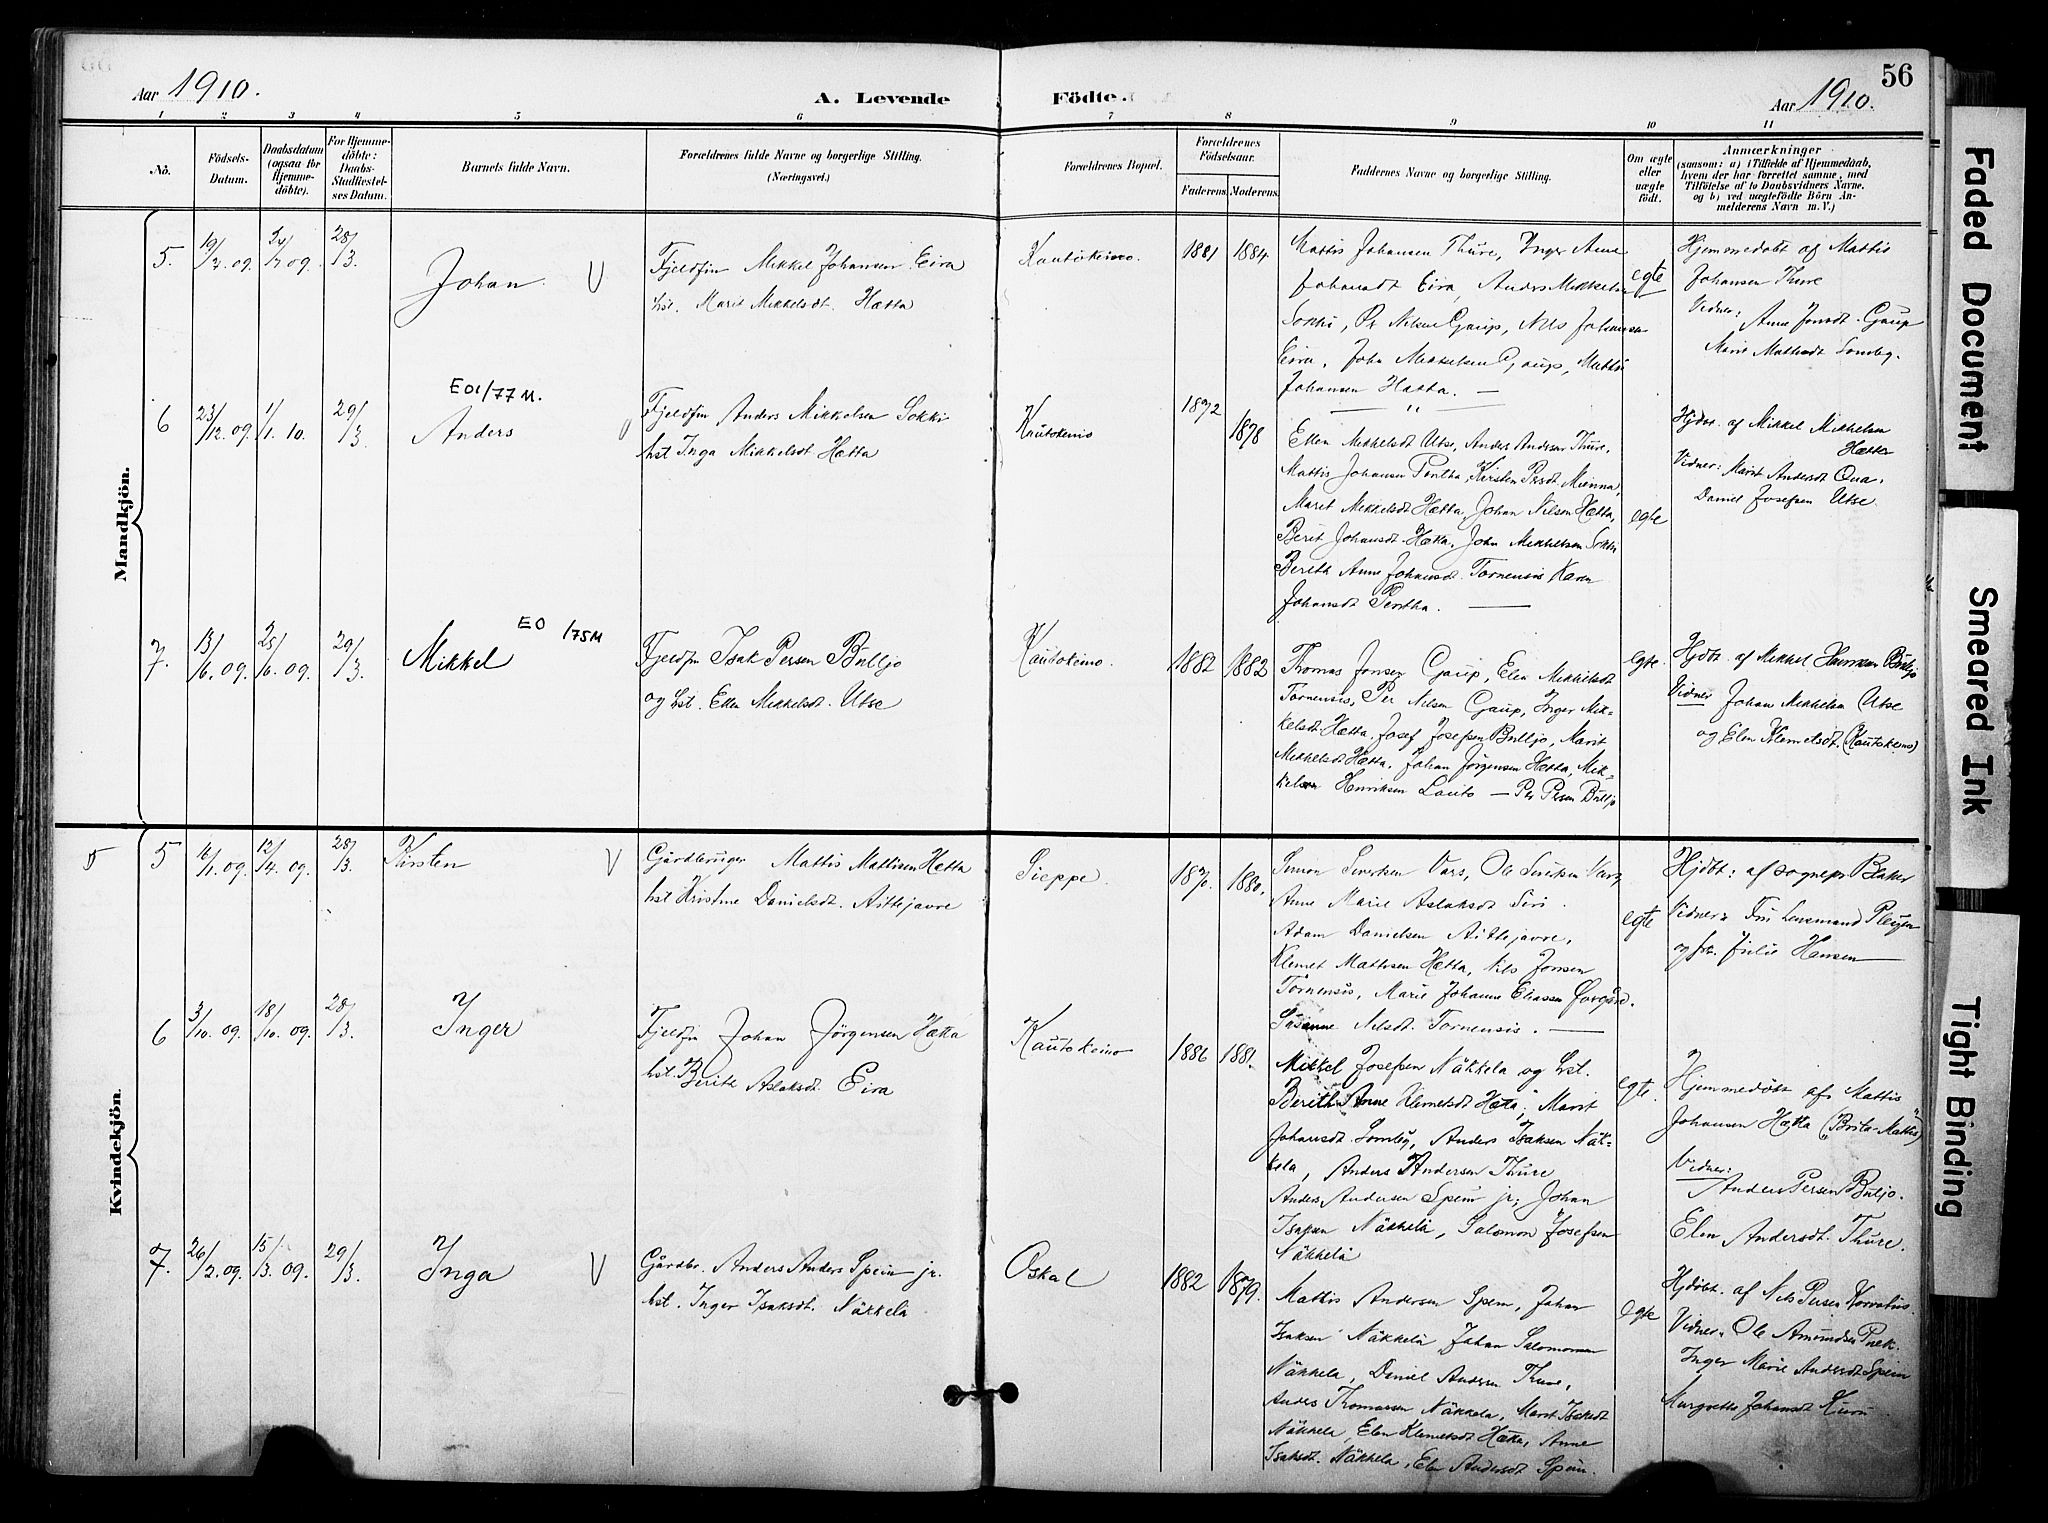 Aar 1910.
A. Levende Födte.
56
Aar 1910.
1 2 3 4 5 6 7 8 9 10 11
No.
Födsels-Datum.
Daabsdatum (ogsaa for Hjemmedöbte).
For Hjemmedöbte: Daabs-Stadfæstelses Datum.
Barnets fulde Navn.
Forældrenes fulde Navne og borgerlige Stilling.
(Næringsvei.)
Forældrenes Bopæl.
Forældrenes Födselsaar.
Faderens. Moderens.
Faddernes Navne og borgerlige Stilling.
Om ægte eller uægte födt.
Anmærkninger
(saasom: a) i Tilfælde af Hjemmedaab,
hvem der har forrettet samme, med
Tilföielse af to Daabsvidners Navne,
og b) ved uægtefödte Börn An-
melderens Navn m. V.)
Mandkjön.
5. 28/3. Johan. V
Fjeldfin Mikkel Johansen Eira
hst. Marit Mikkelsdt. Hætta
Kautokeino. 1881 1884.
Mattis Johansen Thure, Inger Anne
Johansdt Eira, Anders Mikkelsen
Sokki, Per Nilsen Gaup, Nils Johansen
Eira, John Mikkelsen Gaup, Mattis
Johansen Hætta. —
egte
Hjemmedøbt af Mattis
Johansen Thure
Vidner: Anne Jonsdt. Gaup
Marit Mathisdt Somby.
6 23/12.09. 1/1.10. 29/3.
E01/77 M.
Anders
Fjeldfin Anders Mikkelsen Sokki
hst Inga Mikkelsdt. Hætta
Kautokeino 1872 1878
Ellen Mikkelsdt Utse, Anders Andersen Thure,
Mattis Johansen Pentha, Kirsten Persdt Mienna,
Marit Mikkelsdt Hætta, Johan Nilsen Hætta,
Berit Johansdt Hætta, John Mikkelsen Sokki
Berith Anne Johansdt. Tornensis Karen
Johansdt Pentha. —
egte
Hjdøbt. af Mikkel Mikkelsen
Hætta
Vidner: Marit Andersdt
Daniel Josefsen Utse
7. 13/6.09. 25/6.09. 29/3.
Mikkel EO /75M
Fjeldfin Isak Persen Bulljo
og hst. Ellen Mikkelsdt. Utse
Kautokeino. 1882 1882
Thomas Jonsen Gaup, Elen Mikkelsdt
Tornensis, Per Nilsen Gaup, Inger Mik-
kelsdt. Hætta. Josef Josefsen Bulljo, Marit
Mikkelsdt Hætta, Johan Jørgensen Hætta, Mik-
kelsen Henriksen Lauto — Per Persen Bulljo
egte.
Hjdbt. af Mikkel Henriksen Buljo
Vidner Johan Mikkelsen Utse
og Elen Klemetsdt. (Kautokeino)
Kvindekjön.
5 5 12/4.09. 28/3. Kirsten V
Gårdbruger Mattis Mattisen Hætta
hst Kristine Danielsdt. Aittejavre
Sieppe. 1870. 1880.
Simon Sivertsen Vars, Ole
Anne Marie Aslaksdt Siri.
Adam Danielsen Aittejavre,
Klemet Mathisen Hætta, Nils Jonsen
Tornensis, Marie Johanne Eliassen
Susanne Nilsdt. Tornensis. —
egte
Hjdbt: af sognepr Balke
Vidner: Fru Lensmand
og frk. Julie Hansen —
6 3/10.09. 18/10.09. 28/3. Inger
Fjeldfin Johan Jørgensen Hætta
hst. Berith Aslaksdt. Eira
Kautokeino 1886 1881.
Mikkel Josefsen Näkkela og hst.
Berith Anne Klemetsdt Hætta, Marit
Johansdt. Somby, Anders Isaksen Näk-
kela, Anders Andersen Thure
Anders Andersen Spein jr; Johan
Isaksen Näkkelä, Salomon Josefsen
Näkkelä
egte.
Hjemmedøbt af Mattis
Johansen Hætta („Brita-Mattis")
Vidner:
Anders Persen Buljo.
Elen Andersdt. Thure.
7. 26/2.09. 15/3.09. 29/3. Inga V
Gårdbr. Anders Anders Spein jr.
hst. Inger Isaksdt. Näkkelä
Oskal 1882 1879.
Mattis Andersen Spein, Johan
Isaksen Näkkelä, Johan Salomonsen
Näkkela, Daniel Andersen Thure,
Anders Thomassen Näkkela, Marit Isaksdt
Näkkela, Elen Klemetsdt Hætta, Anne
Isaksdt. Näkkela, Elen Andersdt Spein.
egte
Hjdøbt. af Nils Persen
Vidner. Ole Amundsen
Inger Marie Andersdt Spein
Margrethe Johansdt
Faded Document
Smeared Ink
Tight Binding